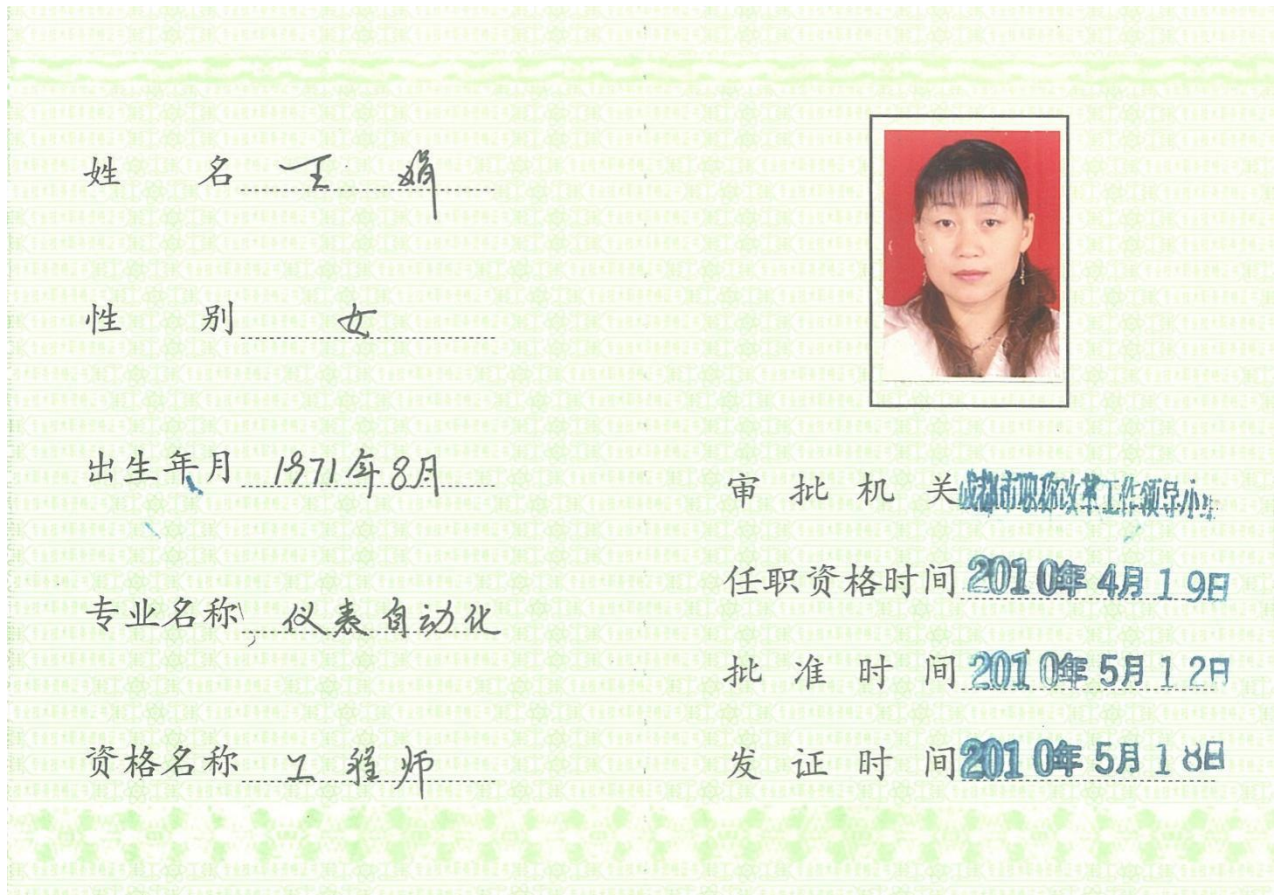 姓名 王娟
性别 女
出生年月 1971年8月
专业名称 仪表自动化
资格名称 工程师
审批机关 成都市职称改革工作领导小组
任职资格时间 2010年4月19日
批准时间 2010年5月12日
发证时间 2010年5月18日